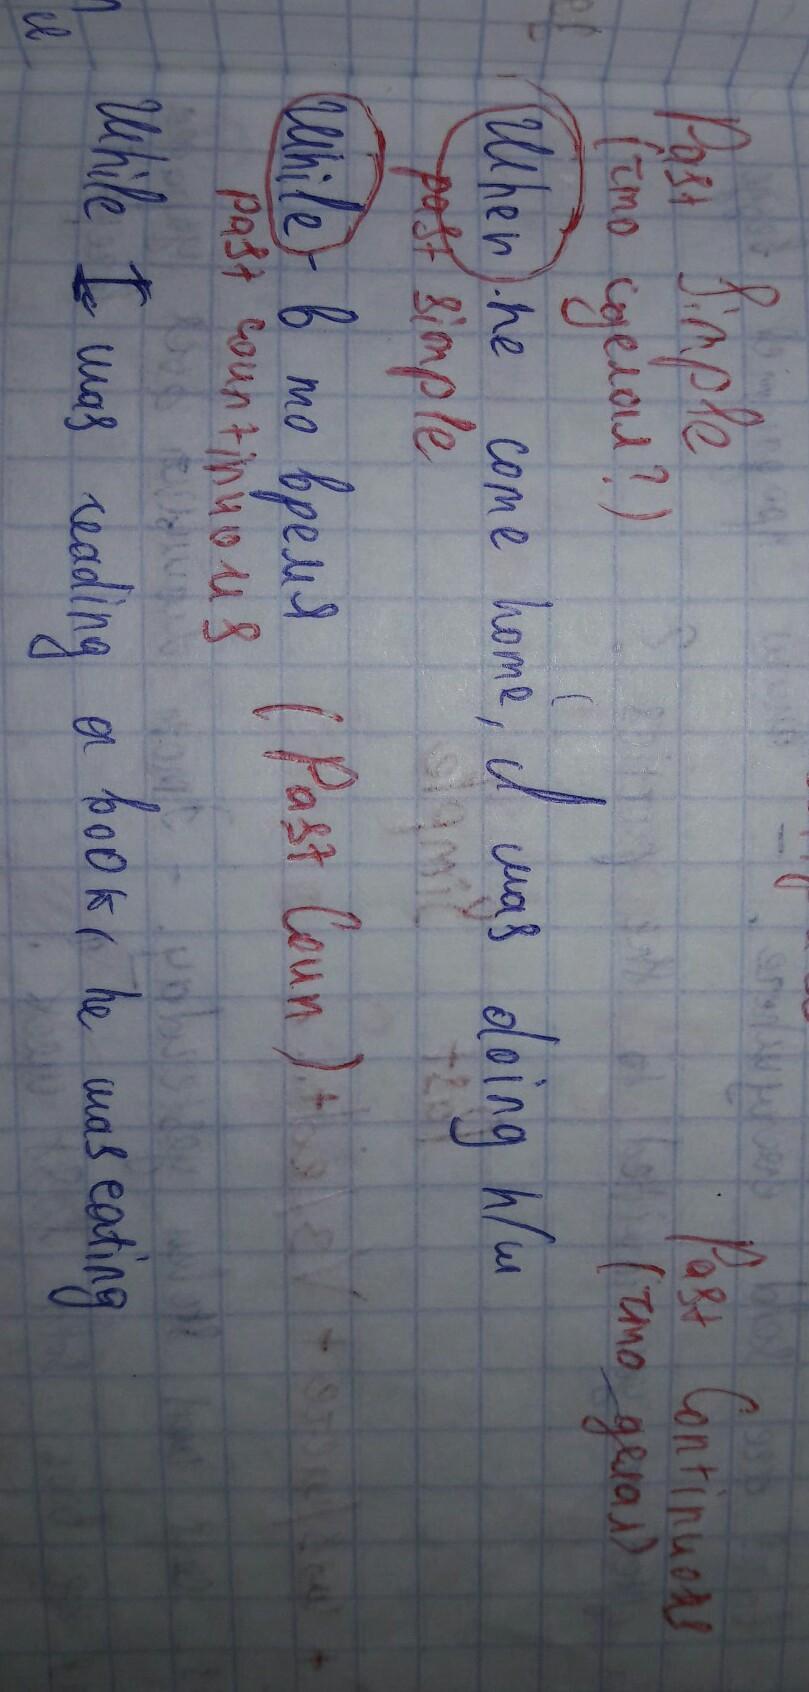 Past Simple Past Continuous
(что сделал?) (что делал)
When he come home, I was doing h/w
past simple
While - в то время (Past Coun)
past countinuous
While I was reading a book, he was eating